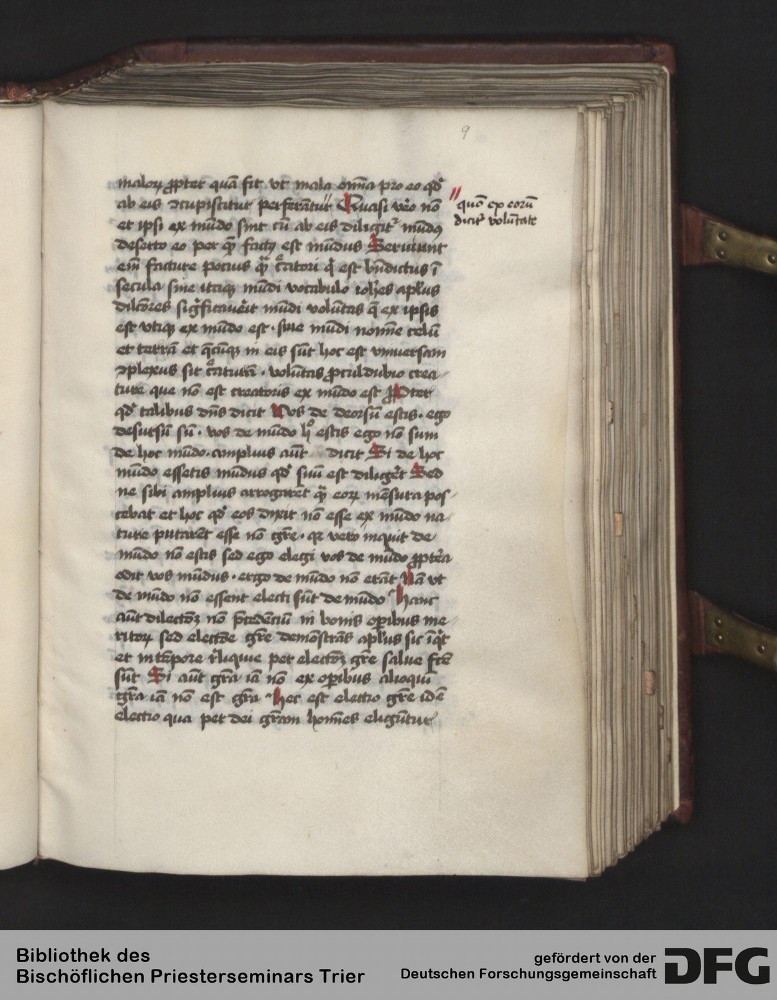 9
malorꝝ ꝓpter quā fit vt mala om̄ia pro eo qd̕
ab eis ꝯcupiscitur perferātur Quasi v̕o nō
et ipsi ex mūdo sint cū ab eis diligit᷑ mūdꝰ
desetto eo per qm̄ factꝰ est mūdus Seruiunt
em̄ facture pocius qm̄ c̄atori q̄ est bn̄dictus ī
secula siue itaqꝫ mūdi vocabulo ioh̄es apl̄us
dilc̄ores sigͥficauerit mūdi volūtas q̄ ex ipsis
est vtiqꝫ ex mūdo est · siue mūdi nomīe celū
et terrā et q̄cūqꝫ in eis sūt hoc est vniuersam
ꝯplexus sit c̄aturā · volūtas ꝓculdubio crea
ture que nō est creatoris ex mūdo est ꝓpter
qd̕ talibus dn̄s dicit Vos de deorsū estis · ego
desursū sū · vos de mūdo hͦ estis ego nō sum
de hoc mūdo · amplius aūt dicit Si de hoc
mūdo essetis mūdus qd̕ suū est diliger̄t Sed
ne sibi amplius arrogarēt qm̄ eorꝝ mēsura pos
cebat et hoc qd̕ eos dixit nō esse ex mūdo na
ture putarēt esse nō gr̄e · qr vero inquit de
mūdo nō estis sed ego elegi vos de mūdo ꝓpt̕ea
odit vos mūdus · ergo de mūdo nō erāt Nā vt
de mūdo nō essent electi sūt de mūdo Hanc
aūt dilectōꝫ nō p̄cedenciū in bonis oꝑibus me
ritorꝝ sed electōe gr̄e demōstrās apl̄us sic īqͥt
et in tēpore reliquie per electōꝫ gr̄e salue fc̄e
sūt Si aūt gr̄a iā nō ex oꝑibus alioquī
gr̄a iā nō est gr̄a Hec est electio gr̄e id ē
electio qua per dei gr̄am homīes eligūtur
quō ex eorū
dicit᷑ volūtate
Bibliothek des
Bischöflichen Priesterseminars Trier
gefördert von der
Deutschen Forschungsgemeinschaft
DFG